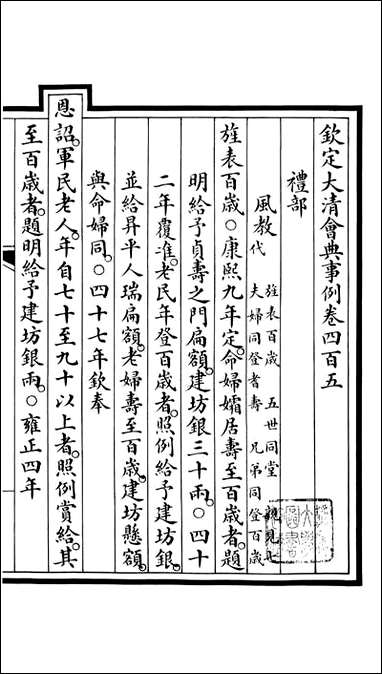 欽定大清會典事例卷四百五
禮部
風教 旌表百歲 五世同堂 親見七
代 夫婦同登耆壽 兄弟同登百歲
旌表百歲○康熙九年定命婦孀居壽至百歲者題
明給予貞壽之門扁額建坊銀三十兩○四十
二年覆准老民年登百歲者照例給予建坊銀
並給昇平人瑞扁額老婦壽至百歲建坊懸額
與命婦同○四十七年欽奉
恩詔軍民老人年自七十至九十以上者照例賞給其
至百歲者題明給予建坊銀兩○雍正四年